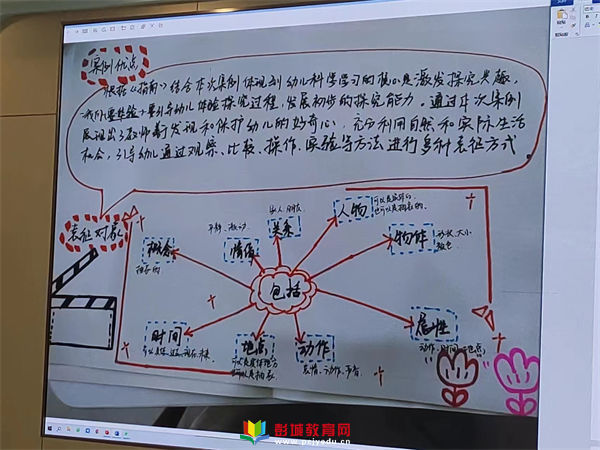 案例优点
根据《指南》结合本次案例体现到幼儿科学学习的核心是激发探究兴趣，
体验探究过程，发展初步的探究能力。通过本次案例
展现出了教师善发现和保护幼儿的好奇心，充分利用自然和实际生活
机会，引导幼儿通过观察、比较、操作、实验等方法进行多种表征方式
表征对象
包括
关系
人物
物体
形状、大小
颜色
属性
动作、时间、地点
动作
表情、动作、声音
地点
时间
概念
情绪
彭城教育网
www.pcjyedu.cn